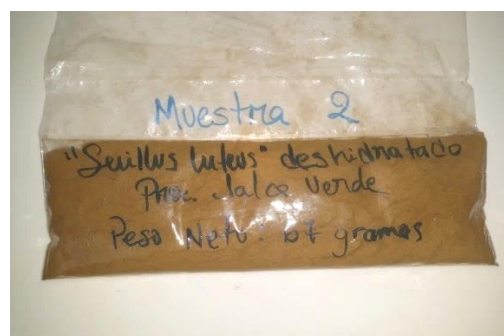 Muestra 2
"Suillus luteus" deshidratado
Proc. Jalca Verde
Peso Neto: 67 gramos